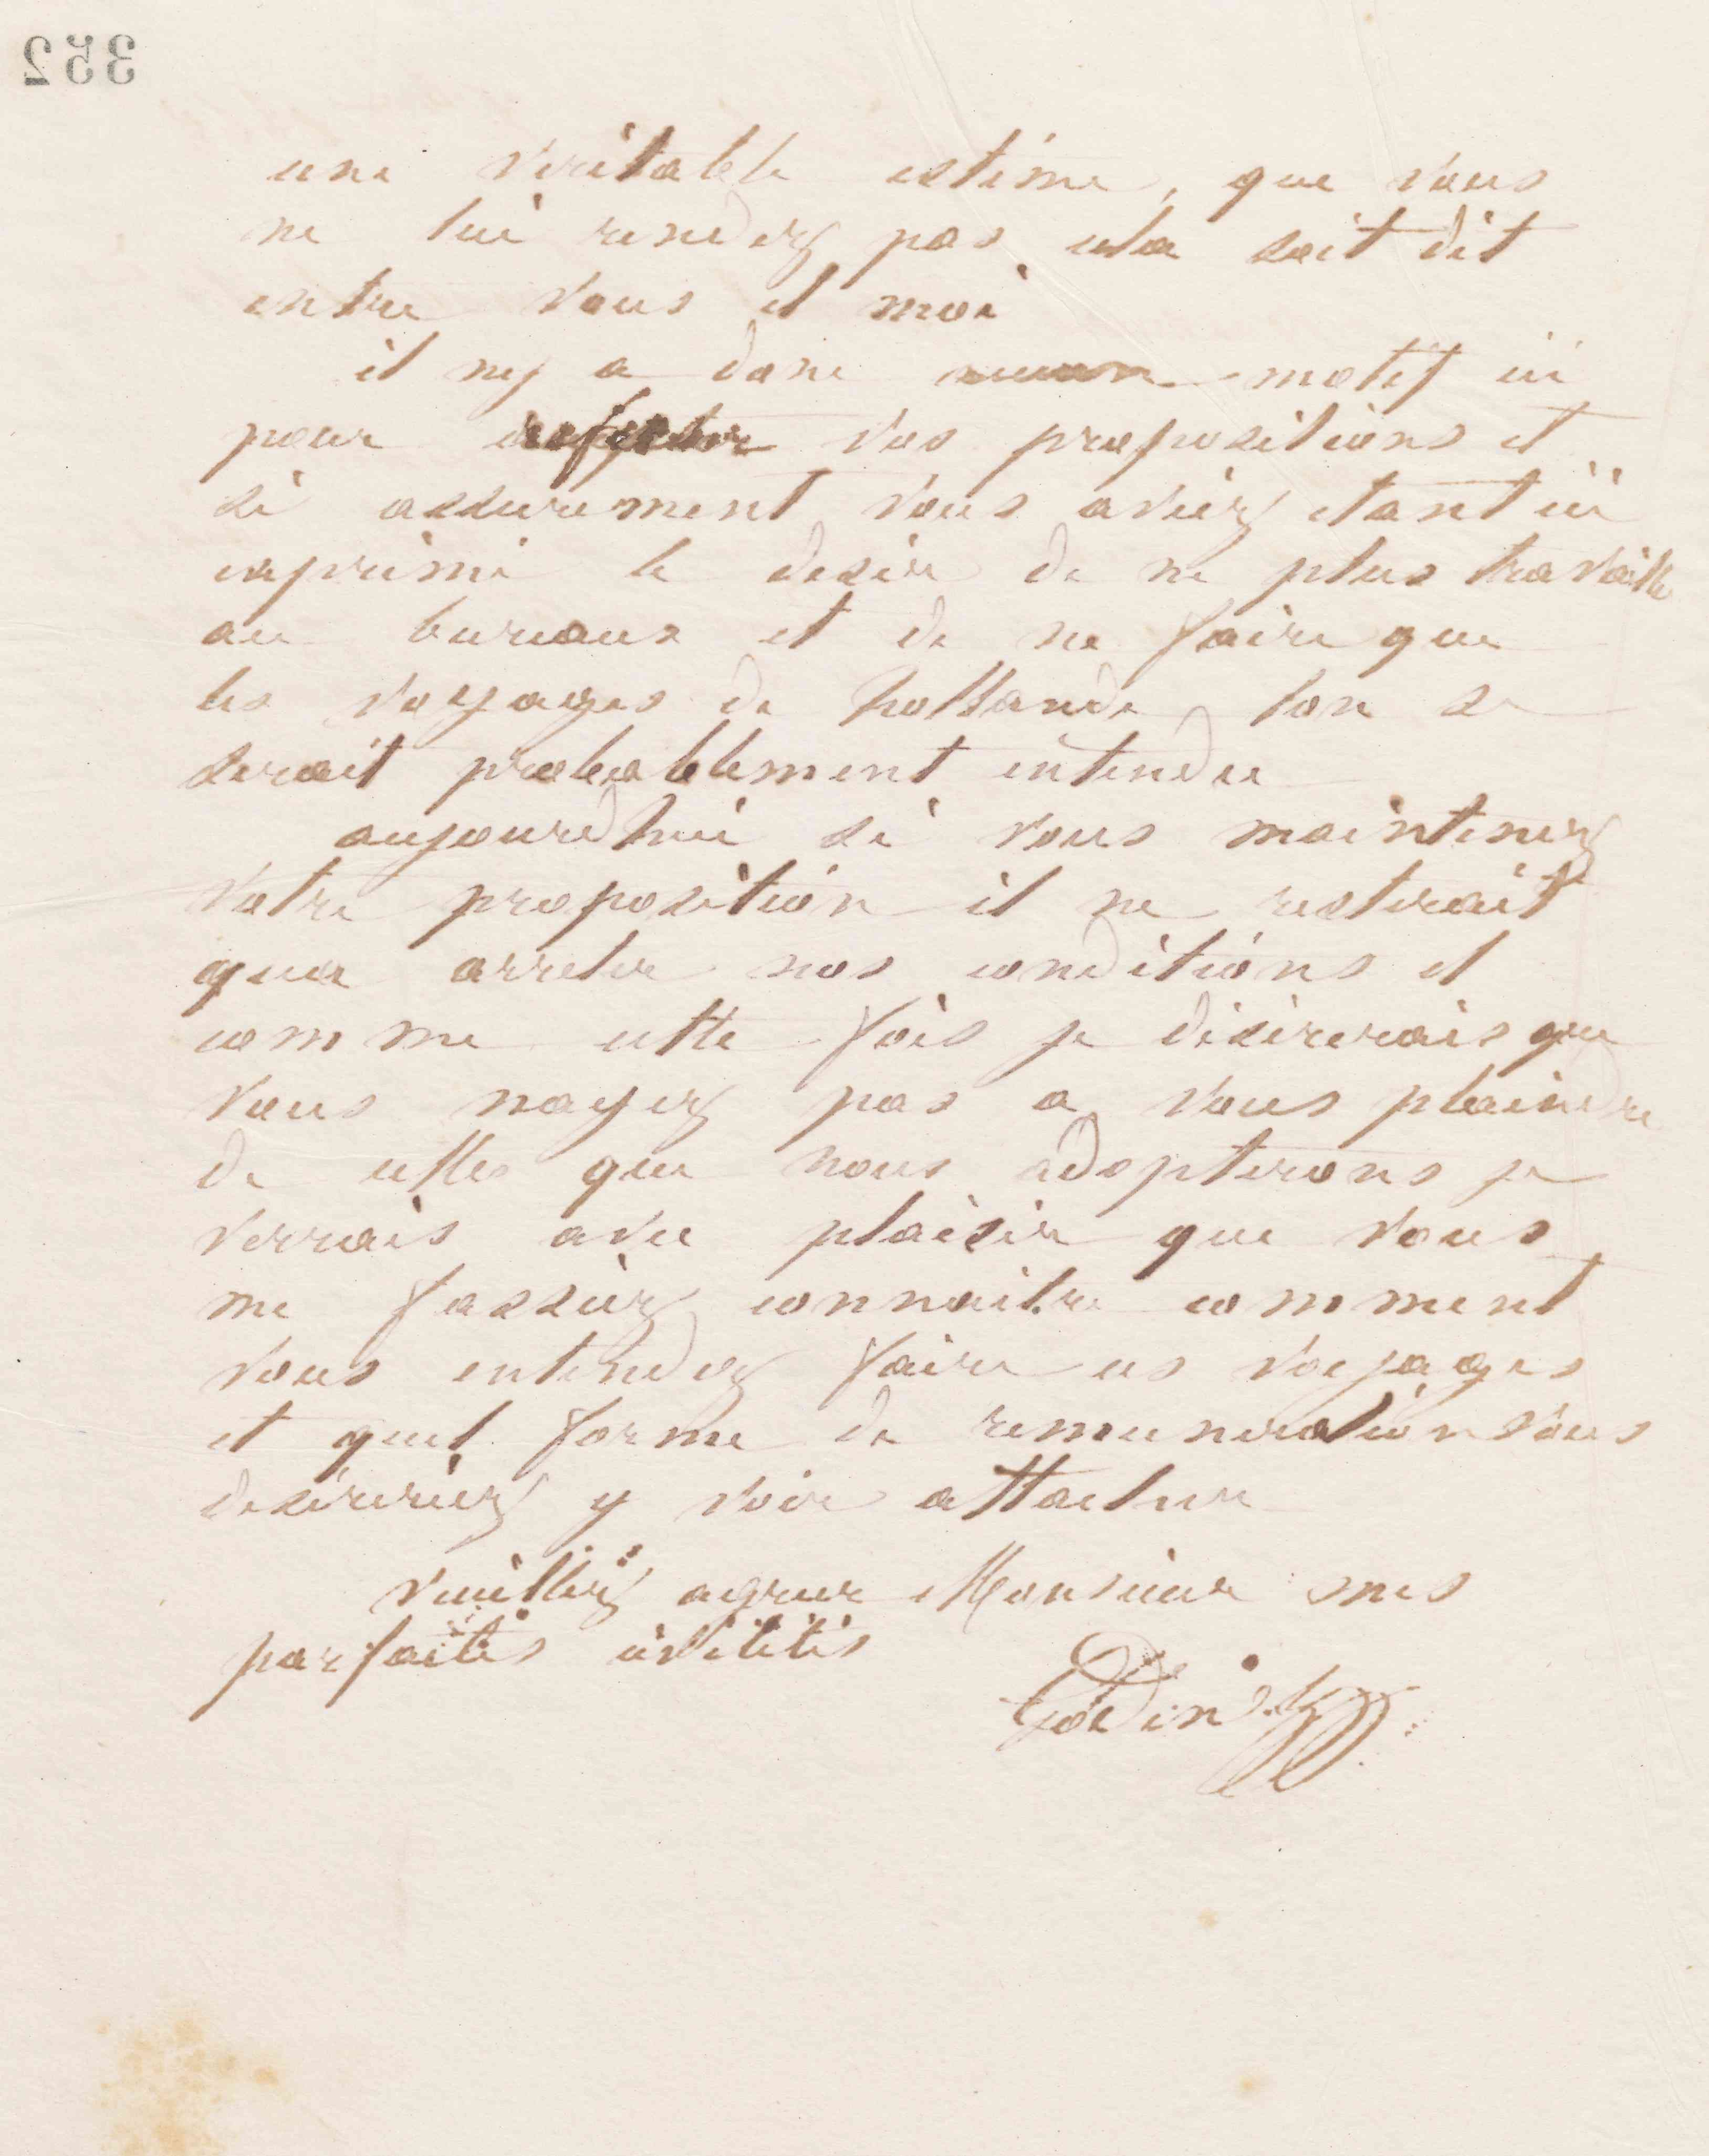 352
une veritable estime, que vous
ne lui rendez pas cela soit dit
entre vous et moi
il ny a donc aucun motif ici
pour vos propositions et
si assurement vous aviez etant ici
exprimé le desir de ne plus travaille
au bureaux et de ne faire que
les voyages de hollande lon se
serait probablement entendu
aujourdhui si vous maintenez
votre proposition il ne resterait
qua arreter nos conditions et
comme cette fois je désirerais que
vous nayez pas a vous plaindre
de celles que nous adopterons je
verrais avec plaisir que vous
me fassiez connaitre comment
vous entendez faire ces voyages
et quel forme de remuneration vous
desireriez y voir attacher
veuillez agreer Monsieur mes
parfaites civilités
Godin